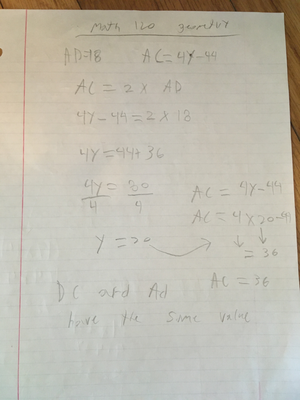 Math 120 geometry
AD=18 AC=4Y-44
AC = 2 x AD
4Y-44=2x18
4Y=44+36
4Y = 80
4 4
AC = 4Y-44
AC = 4x20-44
= 36
Y = 20
AC = 36
DC and Ad
have the same value